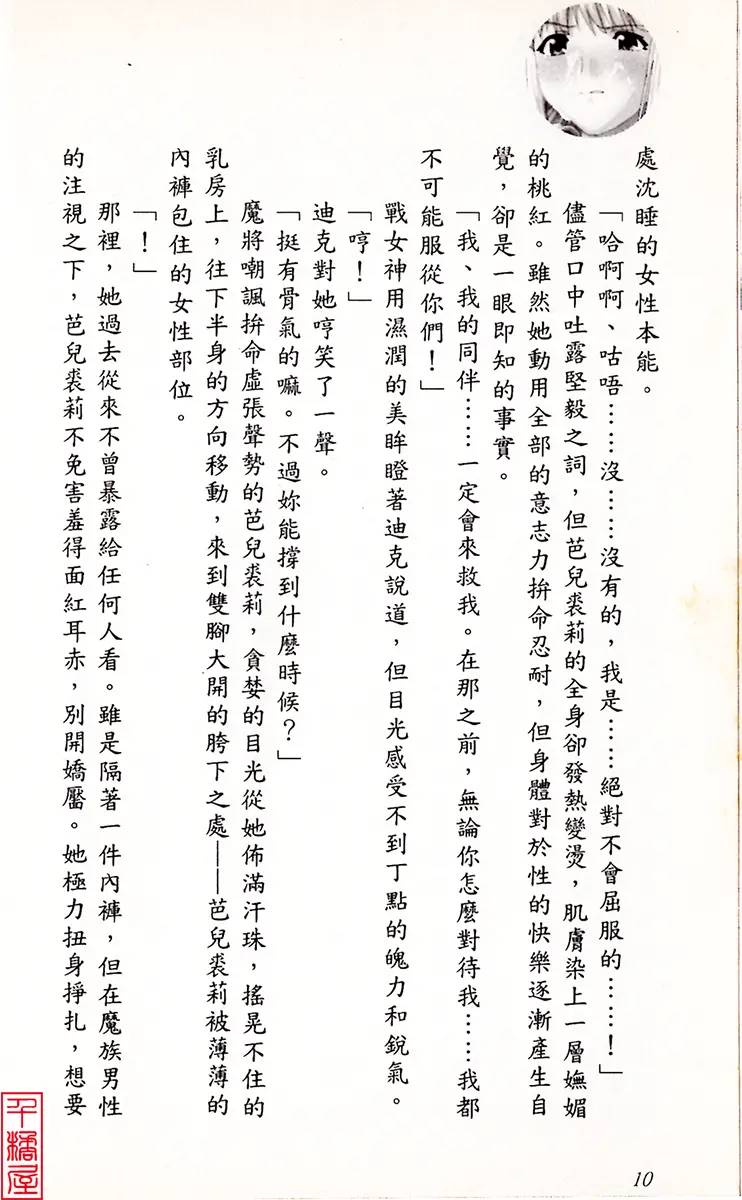 處沈睡的女性本能。
「哈啊啊、咕唔……沒……沒有的，我是……絕對不會屈服的……！」
儘管口中吐露堅毅之詞，但芭兒裘莉的全身卻發熱變燙，肌膚染上一層嫵媚
的桃紅。雖然她動用全部的意志力拚命忍耐，但身體對於性的快樂逐漸產生自
覺，卻是一眼即知的事實。
「我、我的同伴……一定會來救我。在那之前，無論你怎麼對待我……我都
不可能服從你們！」
戰女神用濕潤的美眸瞪著迪克說道，但目光感受不到丁點的魄力和銳氣。
「哼！」
迪克對她哼笑了一聲。
「挺有骨氣的嘛。不過妳能撐到什麼時候？」
魔將嘲諷拚命虛張聲勢的芭兒裘莉，貪婪的目光從她佈滿汗珠，搖晃不住的
乳房上，往下半身的方向移動，來到雙腳大開的胯下之處——芭兒裘莉被薄薄的
內褲包住的女性部位。
「！」
那裡，她過去從來不曾暴露給任何人看。雖是隔著一件內褲，但在魔族男性
的注視之下，芭兒裘莉不免害羞得面紅耳赤，別開嬌靨。她極力扭身掙扎，想要
10
千橘屋